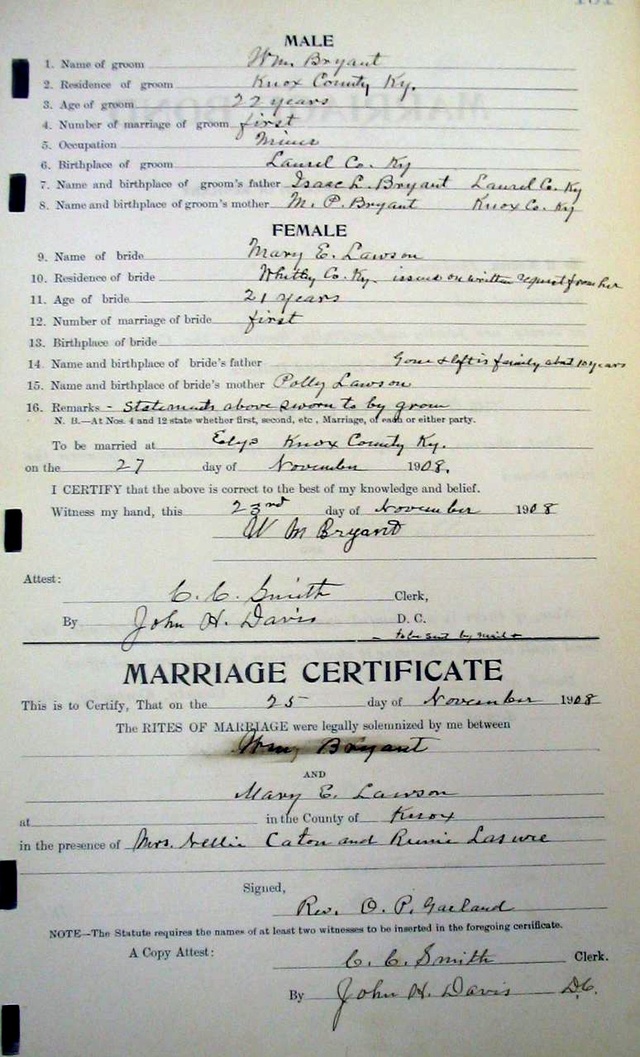 MALE
1. Name of groom Wm. Bryant
2. Residence of groom Knox County Ky.
3. Age of groom 22 years
4. Number of marriage of groom first
5. Occupation Miner
6. Birthplace of groom Laurel Co. Ky
7. Name and birthplace of groom's father Isaac L. Bryant Laurel Co. Ky
8. Name and birthplace of groom's mother M. P. Bryant Knox Co. Ky
FEMALE
9. Name of bride Mary E. Lawson
10. Residence of bride Whitley Co. Ky. issued on written request from her
11. Age of bride 21 years
12. Number of marriage of bride first
13. Birthplace of bride
14. Name and birthplace of bride's father Gone & left is family about 10 years
15. Name and birthplace of bride's mother Polly Lawson
16. Remarks - Statements above sworn to by groom
N. B.—At Nos. 4 and 12 state whether first, second, etc., Marriage, of each or either party.
To be married at Elys Knox County Ky.
on the 27 day of November 1908.
I CERTIFY that the above is correct to the best of my knowledge and belief.
Witness my hand, this 23rd day of November 1908
W M Bryant
Attest:
C. C. Smith Clerk,
By John H. Davis D. C.
- to be sent by mail -
MARRIAGE CERTIFICATE
This is to Certify, That on the 25 day of November 1908
The RITES OF MARRIAGE were legally solemnized by me between
Wm. Bryant
AND
Mary E. Lawson
at in the County of Knox
in the presence of Mrs. Nellie Caton and
Signed,
Rev. O. P. Garland
NOTE—The Statute requires the names of at least two witnesses to be inserted in the foregoing certificate.
A Copy Attest:
C. C. Smith Clerk.
By John H. Davis D.C.